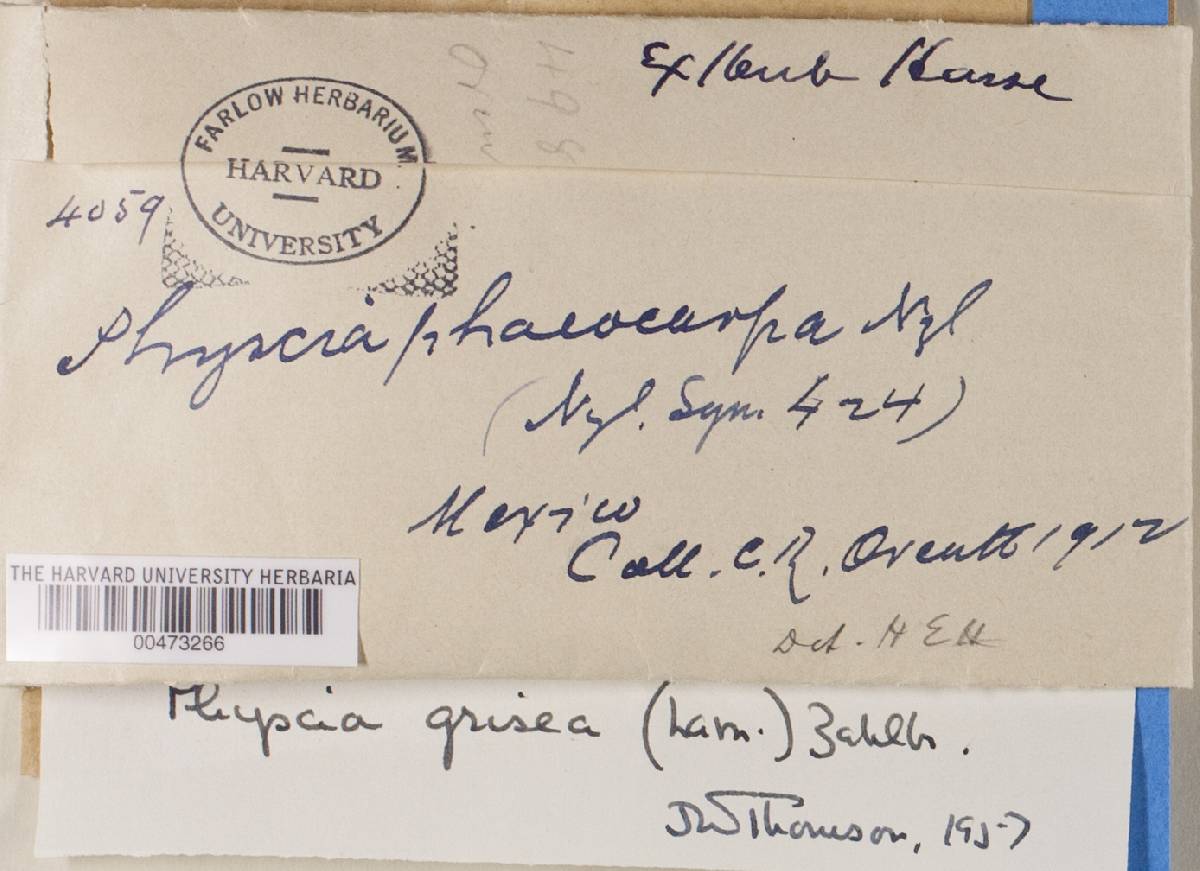 Ex Herb Hasse
FARLOW HERBARIUM
HARVARD
UNIVERSITY
4059
Physcia phaeocarpa Nyl
(Nyl. Syn. 424)
Mexico
Coll. C. R. Orcutt 1912
Det. H E H
THE HARVARD UNIVERSITY HERBARIA
00473266
Physcia grisea (Lam.) Zahlbr.
JW Thomson, 1957